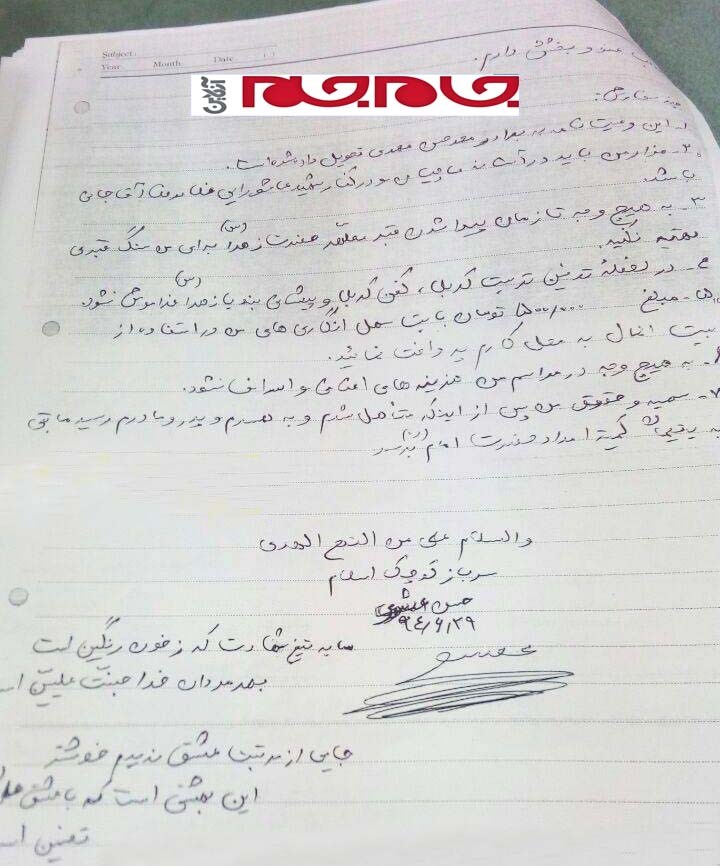 Subject:
Year. Month Date ( )
عفو و بخشش دارم.
جام جم آنلاین
چند سفارش:
۱. این وصیت نامه به برادرم مهدی تحویل داده شده است.
۲- مزار من باید در آستانه و در کنار شهید عاشورایی
باشد.
۳- به هیچ وجه تا زمان پیدا شدن قبر مطهر حضرت زهرا (س) برای من سنگ قبری
تهیه نکنید.
۴- در لحظهٔ تدفین تربت کربلا، کفن کربلا و پیشانی بند یا زهرا (س) فراموش نشود.
۵- مبلغ ۵۰۰/۰۰۰ تومان بابت سهل انگاری های من در استفاده از
بیت المال به محل کارم پرداخت نمائید.
۶- به هیچ وجه در مراسم من هزینه های اضافی و اسراف نشود.
۷- سهمیه و حقوق من پس از اینکه متأهل شدم و به همسرم و پدر و مادرم رسید مابقی
به یتیمان کمیته امداد حضرت امام (ره) برسد
والسلام علی من التبع الهدی
سرباز کوچک اسلام
حسن
۹۴/۶/۲۹
سایه تیغ شهادت که ز خون رنگین است
بهر مردان خدا جنت علیین
جایی از تربت عشق ندیدم خوشتر
این بهشتی است که با عشق
تعیین